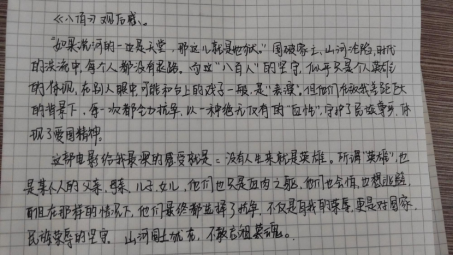 《八佰》观后感。
"如果说河的一边是天堂,那这儿就是地狱。"国破家亡,山河沦陷,时代
的洪流中,每个人都没有退路。而这"八百人"的坚守,似乎只是个人英雄
的体现,在别人眼中可能和台上的戏子一般,是"表演",但他们在敌我差距巨大
的背景下,每一次都全力抗争,以一种绝无仅有的"血性",守护了民族尊严,体
现了爱国精神。
这部电影给我最深的感受就是:没有人生来就是英雄。所谓"英雄",也
是某个人的父亲、母亲、儿子、女儿,他们也只是血肉之躯,他们也会怕,也想逃避,
而但在那样的情况下,他们最终都选择了抗争,不仅是自我的荣辱,更是对国家、
民族荣辱的坚守。山河国土犹在,不敢忘祖英魂。